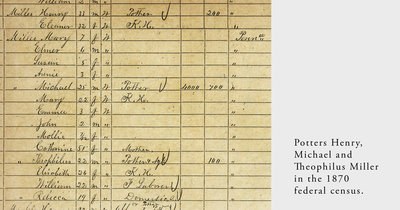 William 2 m "
Miller Henry 33 m W Potter 200 "
Eleanor 32 f " K. H. "
Miller Mary 7 f W Penn
" Elmer 6 m " "
" Susan 5 f " "
" Annie 3 f " "
" Michael 25 m " Potter 4000 700 "
Mary 22 f " K. H. "
Emma 3 f W "
John 2 m " "
Mollie f " "
Catharine 51 f " Mother "
" Theophilus 22 m " Potter 100 "
K. H. "
William 22 m " "
" Rebecca 19 f " Domestic "
Potters Henry,
Michael and
Theophilus Miller
in the 1870
federal census.